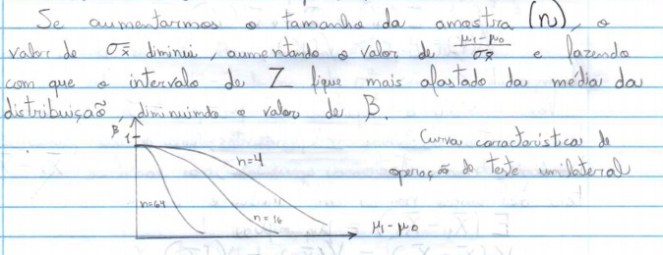 Se aumentarmos o tamanho da amostra (n), o
valor de σx̄ diminui, aumentando o valor de μ1-μ0/σx̄ e fazendo
com que o intervalo de Z fique mais afastado da média da
distribuição, diminuindo o valor de β.
β
1
n=4
n=64
n=16
μ1-μ0
Curva característica de
operação do teste unilateral